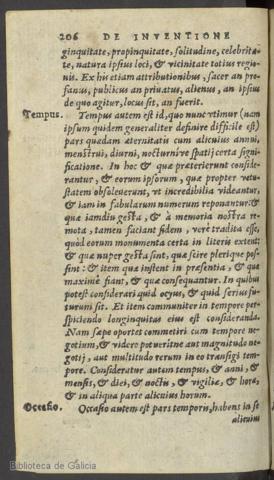 206 DE INVENTIONE
ginquitate, propinquitate, solitudine, celebrita-
te, natura ipsius loci, & vicinitate totius regio-
nis. Ex his etiam attributionibus, sacer an pro-
fanus, publicus an priuatus, alienus, an ipsius
de quo agitur, locus sit, an fuerit.
Tempus. Tempus autem est id, quo nunc vtimur (nam
ipsum quidem generaliter definire difficile est)
pars quædam æternitatis cum alicuius annui,
menstrui, diurni, nocturniue spatij certa signi-
ficatione. In hoc & quæ præterierunt conside-
rantur, & eorum ipsorum, quæ propter vetu-
statem obsoleuerunt, vt incredibilia videantur,
& iam in fabularum numerum reponantur: &
quæ iamdiu gesta, & à memoria nostra re-
mota, tamen faciant fidem, vere tradita esse,
quòd eorum monumenta certa in literis extent:
& quæ nuper gesta sint, quæ scire plerique pos-
sint: & item quæ instent in præsentia, & quæ
maximè fiant, & quæ consequantur. In quibus
potest considerari quid ocyus, & quid serius fu-
turum sit. Et item communiter in tempore per-
spiciendo longinquitas eius est consideranda.
Nam sæpe oportet commetiri cum tempore ne-
gotium, & videre potueritne aut magnitudo ne-
gotij, aut multitudo rerum in eo transigi tem-
pore. Consideratur autem tempus, & anni, &
mensis, & diei, & noctis, & vigiliæ, & horæ,
& in aliqua parte alicuius horum.
Occasio. Occasio autem est pars temporis, habens in se
alicuius
Biblioteca de Galicia